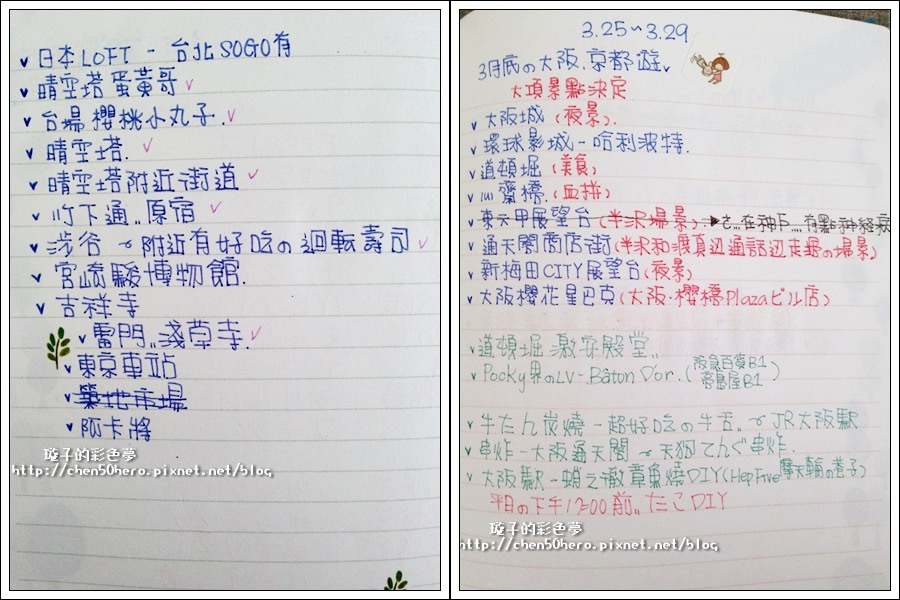 日本LOFT - 台北SOGO有
晴空塔蛋黃哥
台場櫻桃小丸子.
晴空塔.
晴空塔附近街道
竹下通..原宿
涉谷~附近有好吃の迴轉壽司
宮崎駿博物館.
吉祥寺
雷門..淺草寺.
東京車站
築地市場
阿卡將
璇子的彩色夢
http://chen50hero.pixnet.net/blog
3.25~3.29
3月底の大阪.京都遊
大項景點決定
大阪城(夜景).
環球影城-哈利波特.
道頓堀(美食)
心齋橋.(血拼)
東六甲展望台(半沢場景)→さ...在神戶...有點神経病
通天閣商店街(半沢和渡真辺通話辺走過の場景)
新梅田CITY展望台(夜景)
大阪櫻花星巴克(大阪·櫻橋Plazaビル店)
道頓堀 激安殿堂..
Pocky界のLV-Bâton D'or.(阪急百貨B1
高島屋B1)
牛たん炭燒-超好吃の牛舌..~JR大阪駅
串炸-大阪通天閣~天狗てんぐ串炸.
大阪駅-蛸之徹章魚燒DIY(Hep Five摩天輪の巷子)
平日の下午17:00前..たこDIY
璇子的彩色夢
http://chen50hero.pixnet.net/blog